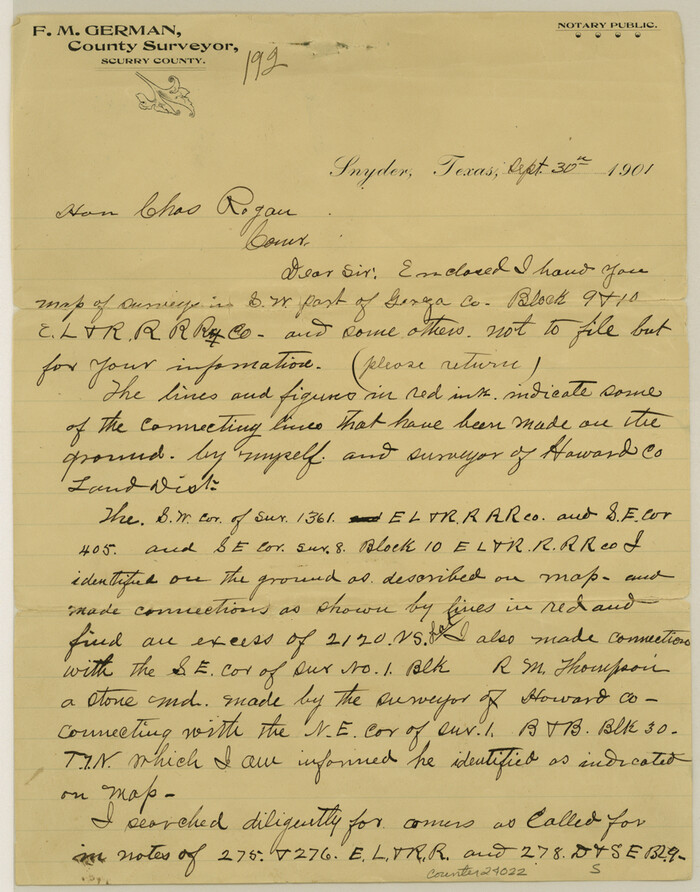 F. M. GERMAN,
County Surveyor,
SCURRY COUNTY.
NOTARY PUBLIC.
192
Snyder, Texas, Sept. 30th 1901
Hon Chas Rogan
Comr.
Dear Sir. Enclosed I hand you
map of surveys in S.W. part of Garza Co. Block 9 & 10
E. L & R. R R R Co - and some others. not to file but
for your infomation. (please return)
The lines and figures in red ink. indicate some
of the connecting lines that have been made on the
ground. by myself. and surveyor of Howard Co
Land Dist.
The. S.W. cor. of Sur. 1361. E L & R. R R R co. and S.E. cor
405. and S E cor. sur. 8. Block 10 E L & R. R. R R co I
identified on the ground as described on map - and
made connections as shown by lines in red and
find an excess of 2120. VS. I also made connection
with the S.E. cor of sur No. 1. Blk R. M. Thompson
a stone md. made by the surveyor of Howard co -
connecting with the N.E. cor of sur. 1. B & B. Blk 30.
T.1.N. which I am informed he identified as indicated
on map -
I searched diligently for corners as called for
in notes of 275. & 276. E. L. & R. R. and 278. D & S E Bl 9 -
counter 24022
S